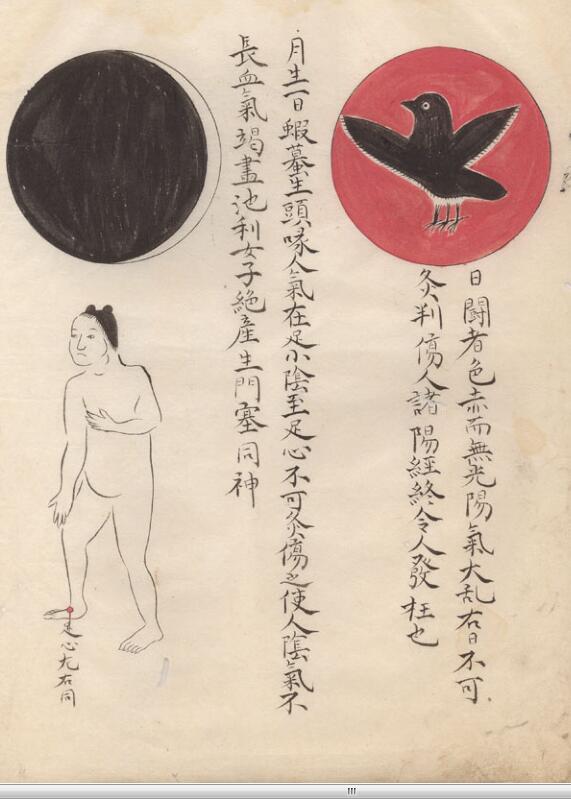 日闘者色赤而無光陽氣大乱右日不可
灸判傷人諸陽經終令人發狂也
月生一日蝦蟇生頭喙人氣在足小陰至足心不可灸傷之使人陰氣不
長血氣竭盡池利女子絶産生門塞同神
足心左右同